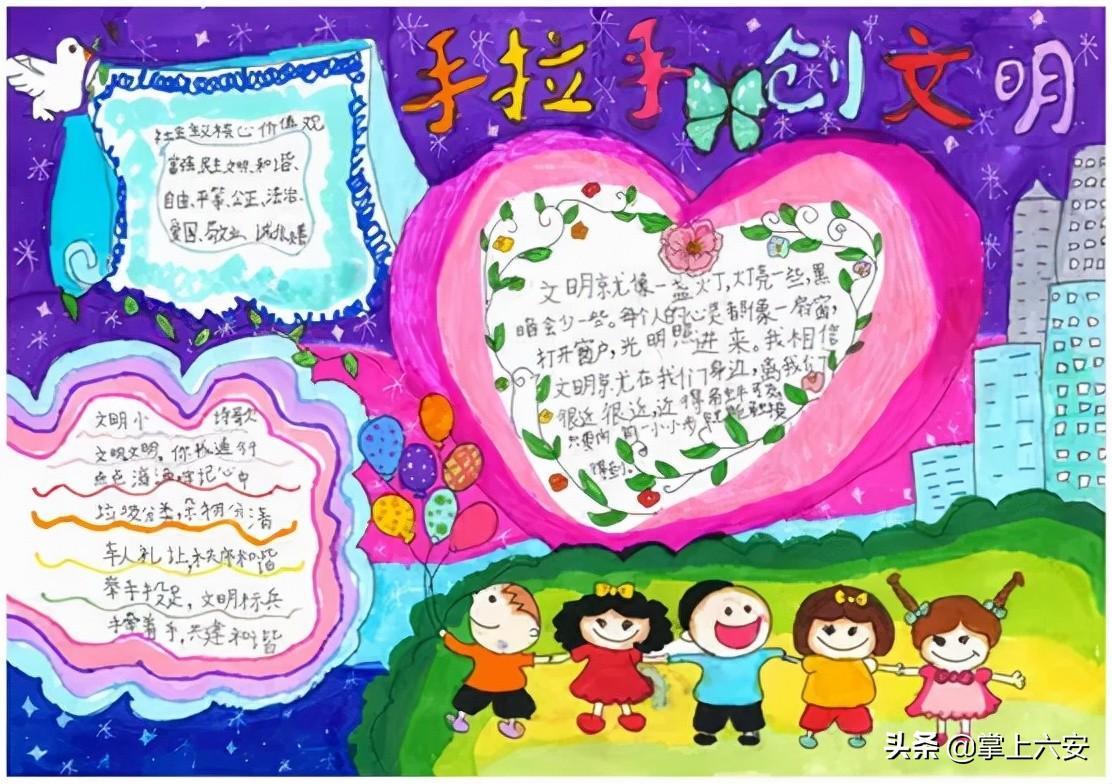 手拉手创文明
社会主义核心价值观
富强、民主、文明、和谐、
自由、平等、公正、法治、
爱国、敬业、诚信、友善
文明就像一盏灯,灯亮一些,黑
暗会少一些。每个人的心灵都像一扇窗,
打开窗户,光明照进来。我相信
文明就在我们身边,离我们
很近很近,近得触手可及,
只要向前一小步就能触摸
得到。
文明小诗歌
文明文明,你我遵行
点点滴滴,牢记心中
垃圾分类,杂物分清
车人礼让,秩序和谐
举手投足,文明标兵
手牵着手,共建和谐
头条 @掌上六安